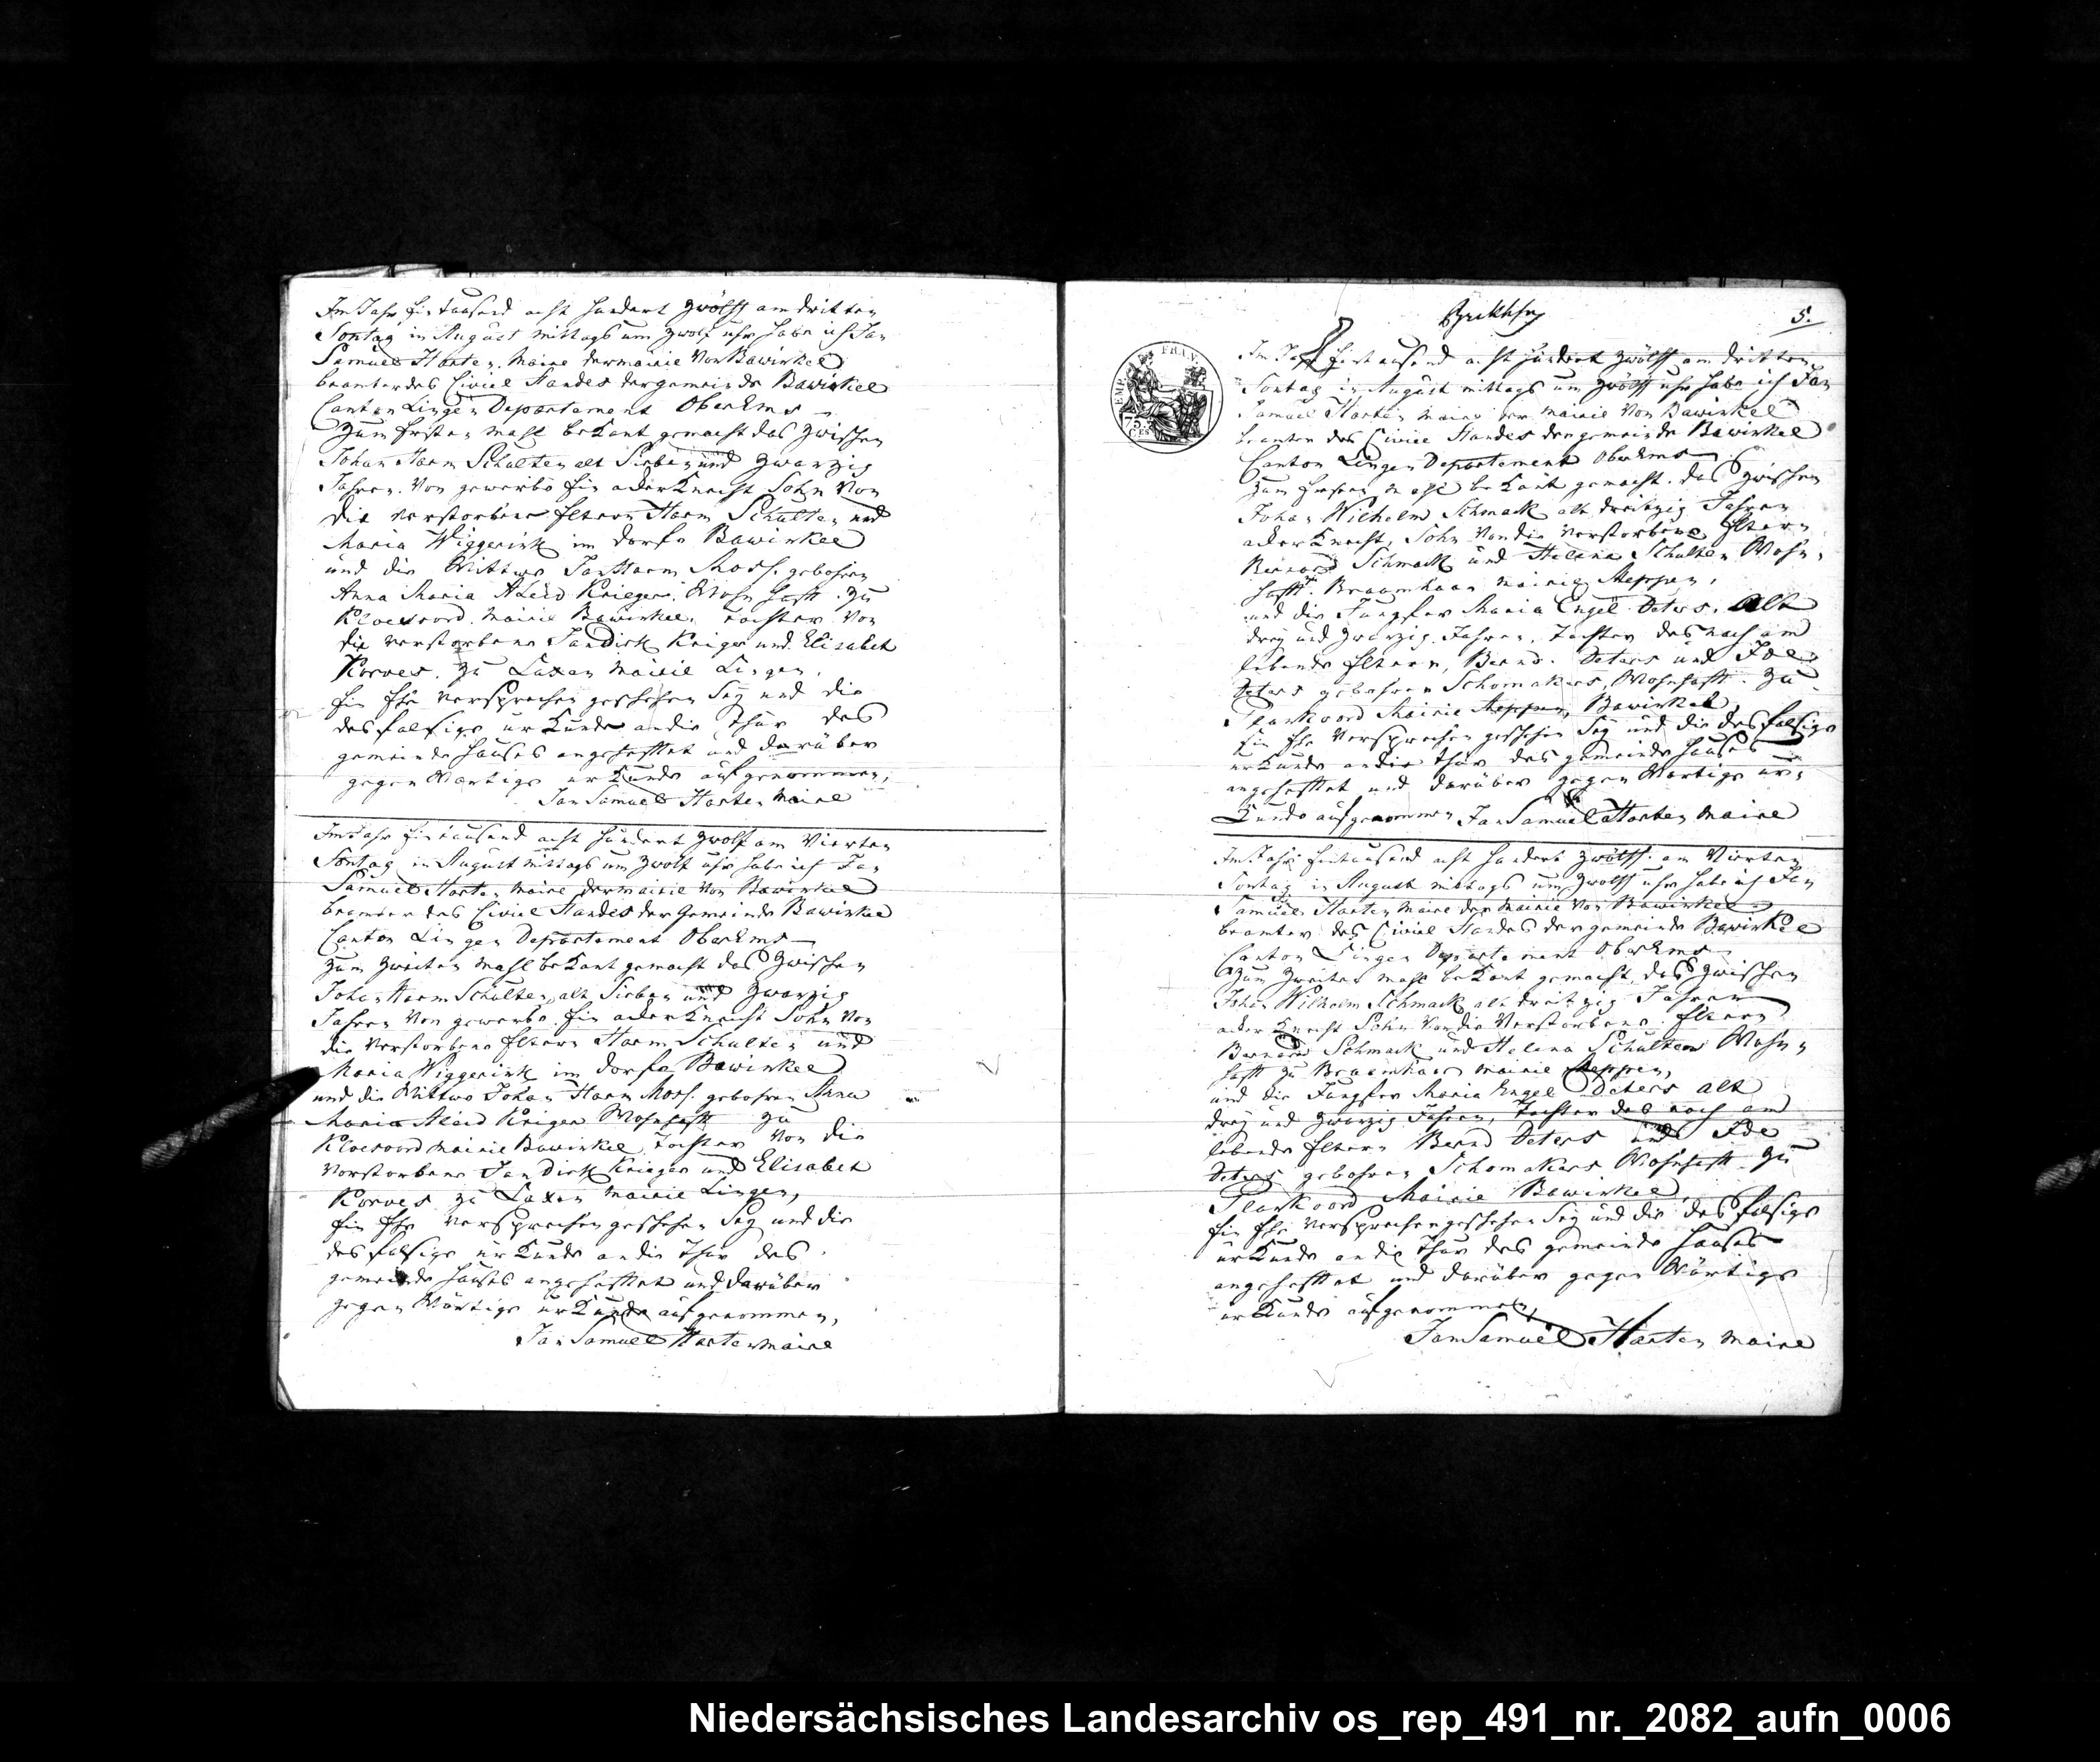 Im Jahr Eintausend acht hundert zwölff am dritten
Sontag in August mittags um zwolf uhr habe ich Jan
Samuel Harten Maire der mairie Von Bawinkel
beamter des Civiel Standes der gemeinde Bawinkel
Canton Lingen Departement OberEms
Zum Ersten mahl beKant gemacht das zwischen
Johan Harm Schulten alt Sieben und zwanzig
Jahren. Von gewerbe Ein ackerKnecht Sohn Von
die verstorbene Eltern Harm Schulten und
Maria Wiggerink im dorfe Bawinkel
und die Wittwe Jan Harm Moss. gebohren
Anna Maria Aleid Krieger. Wohnhafft. zu
Kloesoord. Mairie Bawinkel. tochter Von
die verstorbene Jan Dirk Kriger und Elisabet
Korves. zu Laxen Mairie Lingen.
Ein Ehe versprechen geschehen Seÿ und die
desfalsige urKunde an die Thür des
gemeinde hauses angehefftet und darüber
gegen Wartige urKunde aufgenommen,
Jan Samuel Harten Maire
Im Jahr Eintausend acht hundert zwolf am Vierten
Sontag in August mittags um zwolf uhr habe ich Jan
Samuel Harten Maire der mairie Von Bawinkel
beamter des Civiel Standes der Gemeinde Bawinkel
Canton Lingen Departement OberEms
Zum zweiten mahl beKant gemacht das zwischen
Johan Harm Schulten, alt Sieben und zwanzig
Jahren Von gewerbe Ein ackerKnecht Sohn Von
die Verstorbene Eltern Harm Schulten und
Maria Wiggerink im dorfe Bawinkel
und die Wittwe Johan Harm Moss. gebohren Anna
Maria Aleid Kriger Wohnhafft zu
Kloesoord mairie Bawinkel, tochter Von die
Verstorbene Jan Dirk Krieger und Elisabet
Korves zu Laxen Mairie Lingen,
Ein Ehe versprechen geschehen Seÿ und die
desfalsige urKunde an die Thür des
gemeinde hauses angehefftet und darüber
gegen Wärtige urKunde aufgenommen,
Jan Samuel Harten Maire
5.
EMP FRAN
75. CES
Im Jahr Eintausend acht hundert zwölff am dritten
Sontag in August mittags um zwölff uhr habe ich Jan
Samuel Harten Maire der Mairie Von Bawinkel
beamter des Civiel Standes der gemeinde Bawinkel
Canton Lingen Departement OberEms
Zum Ersten mahl beKant gemacht. das zwischen
Johan Wilhelm Schmack alt dreitzig Jahren
ackerKnecht, Sohn Von die Verstorbene Eltern
Bernard Schmack und Helena Schulten Wohn-
hafft. Braamhaar mairie Meppen,
und die Jungfer Maria Engel Deters. Alt
dreÿ und zwanzig Jahren, tochter des noch am
lebende Eltern, Bernd. Deters und Ide
Deters gebohren Schomakers, Wohnhafft. zu
Plankoord Mairie Meppen, Bawinkel,
Ein Ehe Versprechen geschehen Seÿ und die desfalsige
urKunde an die thür des gemeinde hauses
angehefftet und darüber gegen Wartige ur-
Kunde aufgenommen Jan Samuel Harten Maire
Im Jahr Eintausend acht hundert zwölff. am Vierten
Sontag in August mittags um zwolff uhr habe ich Jan
Samuel Harten Maire der Mairie Von Bawinkel
beamter des Civiel Standes der gemeinde Bawinkel
Canton Lingen Departement OberEms
Zum zweiten mahl beKant gemacht, das zwischen
Johan Wilhelm Schmack alt dreitzig Jahren
acker Knecht Sohn Von die Verstorbene Eltern
Bernard Schmack und Helena Schulten Wohn-
hafft zu Braamhaar mairie Meppen,
und die Jungfer Maria Engel Deters alt
dreÿ und zwanzig Jahren, tochter des noch am
lebende Eltern Bernd Deters und Ide
Deters gebohren Schomakers Wohnhafft zu
Plankoord Mairie Bawinkel,
Ein Ehe Versprechen geschehen Seÿ und die desfalsige
urKunde an die thür des gemeinde hauses
angehefftet und darüber gegen Wärtige
urKunde aufgenommen,
Jan Samuel Harten Maire
Niedersächsisches Landesarchiv os_rep_491_nr._2082_aufn_0006